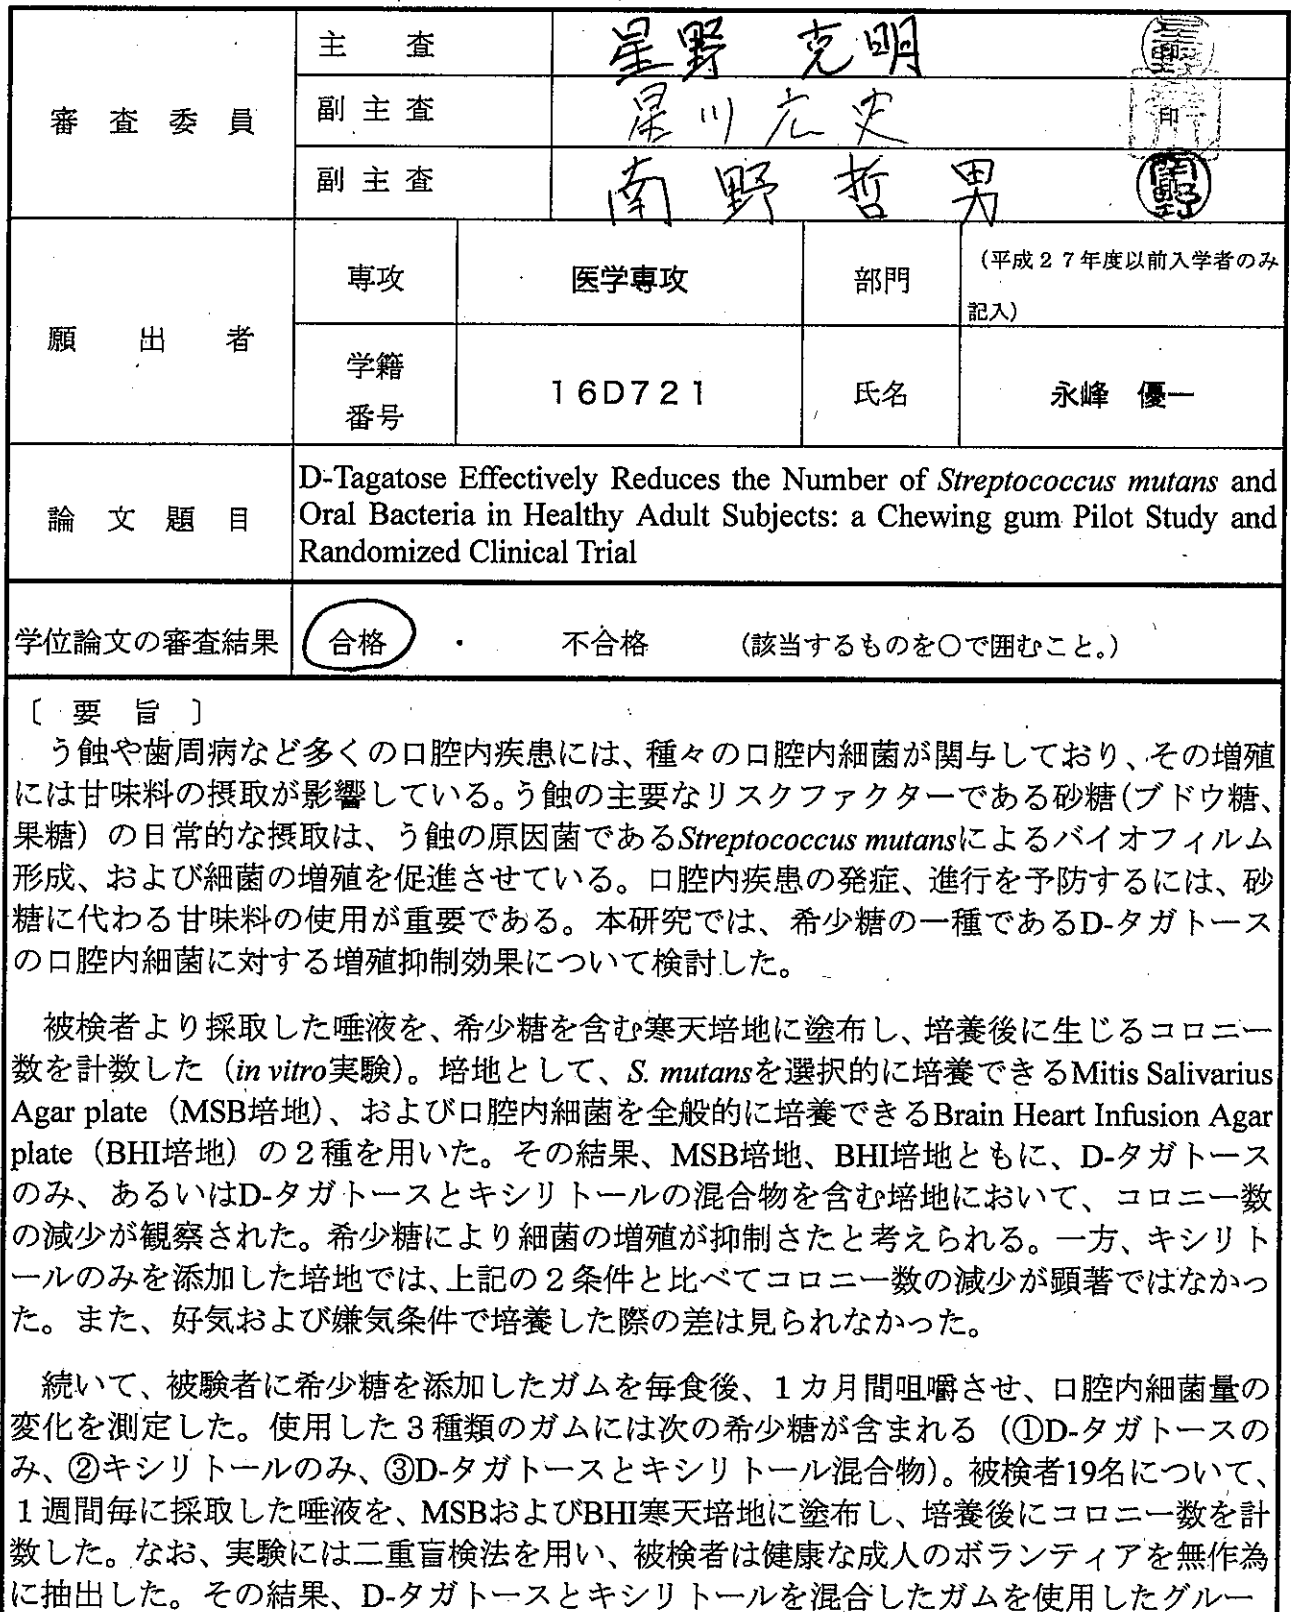 審査委員
主査 星野 克明 印
副主査 星川広史 印
副主査 南野哲男 印
願出者
専攻 医学専攻 部門 (平成27年度以前入学者のみ
記入)
学籍
番号
16D721 氏名 永峰 優一
論文題目
D-Tagatose Effectively Reduces the Number of Streptococcus mutans and
Oral Bacteria in Healthy Adult Subjects: a Chewing gum Pilot Study and
Randomized Clinical Trial
学位論文の審査結果 合格 ・ 不合格 (該当するものを○で囲むこと。)
〔要旨〕
う蝕や歯周病など多くの口腔内疾患には、種々の口腔内細菌が関与しており、その増殖
には甘味料の摂取が影響している。う蝕の主要なリスクファクターである砂糖(ブドウ糖、
果糖)の日常的な摂取は、う蝕の原因菌であるStreptococcus mutansによるバイオフィルム
形成、および細菌の増殖を促進させている。口腔内疾患の発症、進行を予防するには、砂
糖に代わる甘味料の使用が重要である。本研究では、希少糖の一種であるD-タガトース
の口腔内細菌に対する増殖抑制効果について検討した。
被検者より採取した唾液を、希少糖を含む寒天培地に塗布し、培養後に生じるコロニー
数を計数した(in vitro実験)。培地として、S. mutansを選択的に培養できるMitis Salivarius
Agar plate(MSB培地)、および口腔内細菌を全般的に培養できるBrain Heart Infusion Agar
plate(BHI培地)の2種を用いた。その結果、MSB培地、BHI培地ともに、D-タガトース
のみ、あるいはD-タガトースとキシリトールの混合物を含む培地において、コロニー数
の減少が観察された。希少糖により細菌の増殖が抑制さたと考えられる。一方、キシリト
ールのみを添加した培地では、上記の2条件と比べてコロニー数の減少が顕著ではなかっ
た。また、好気および嫌気条件で培養した際の差は見られなかった。
続いて、被験者に希少糖を添加したガムを毎食後、1カ月間咀嚼させ、口腔内細菌量の
変化を測定した。使用した3種類のガムには次の希少糖が含まれる(①D-タガトースの
み、②キシリトールのみ、③D-タガトースとキシリトール混合物)。被検者19名について、
1週間毎に採取した唾液を、MSBおよびBHI寒天培地に塗布し、培養後にコロニー数を計
数した。なお、実験には二重盲検法を用い、被検者は健康な成人のボランティアを無作為
に抽出した。その結果、D-タガトースとキシリトールを混合したガムを使用したグルー